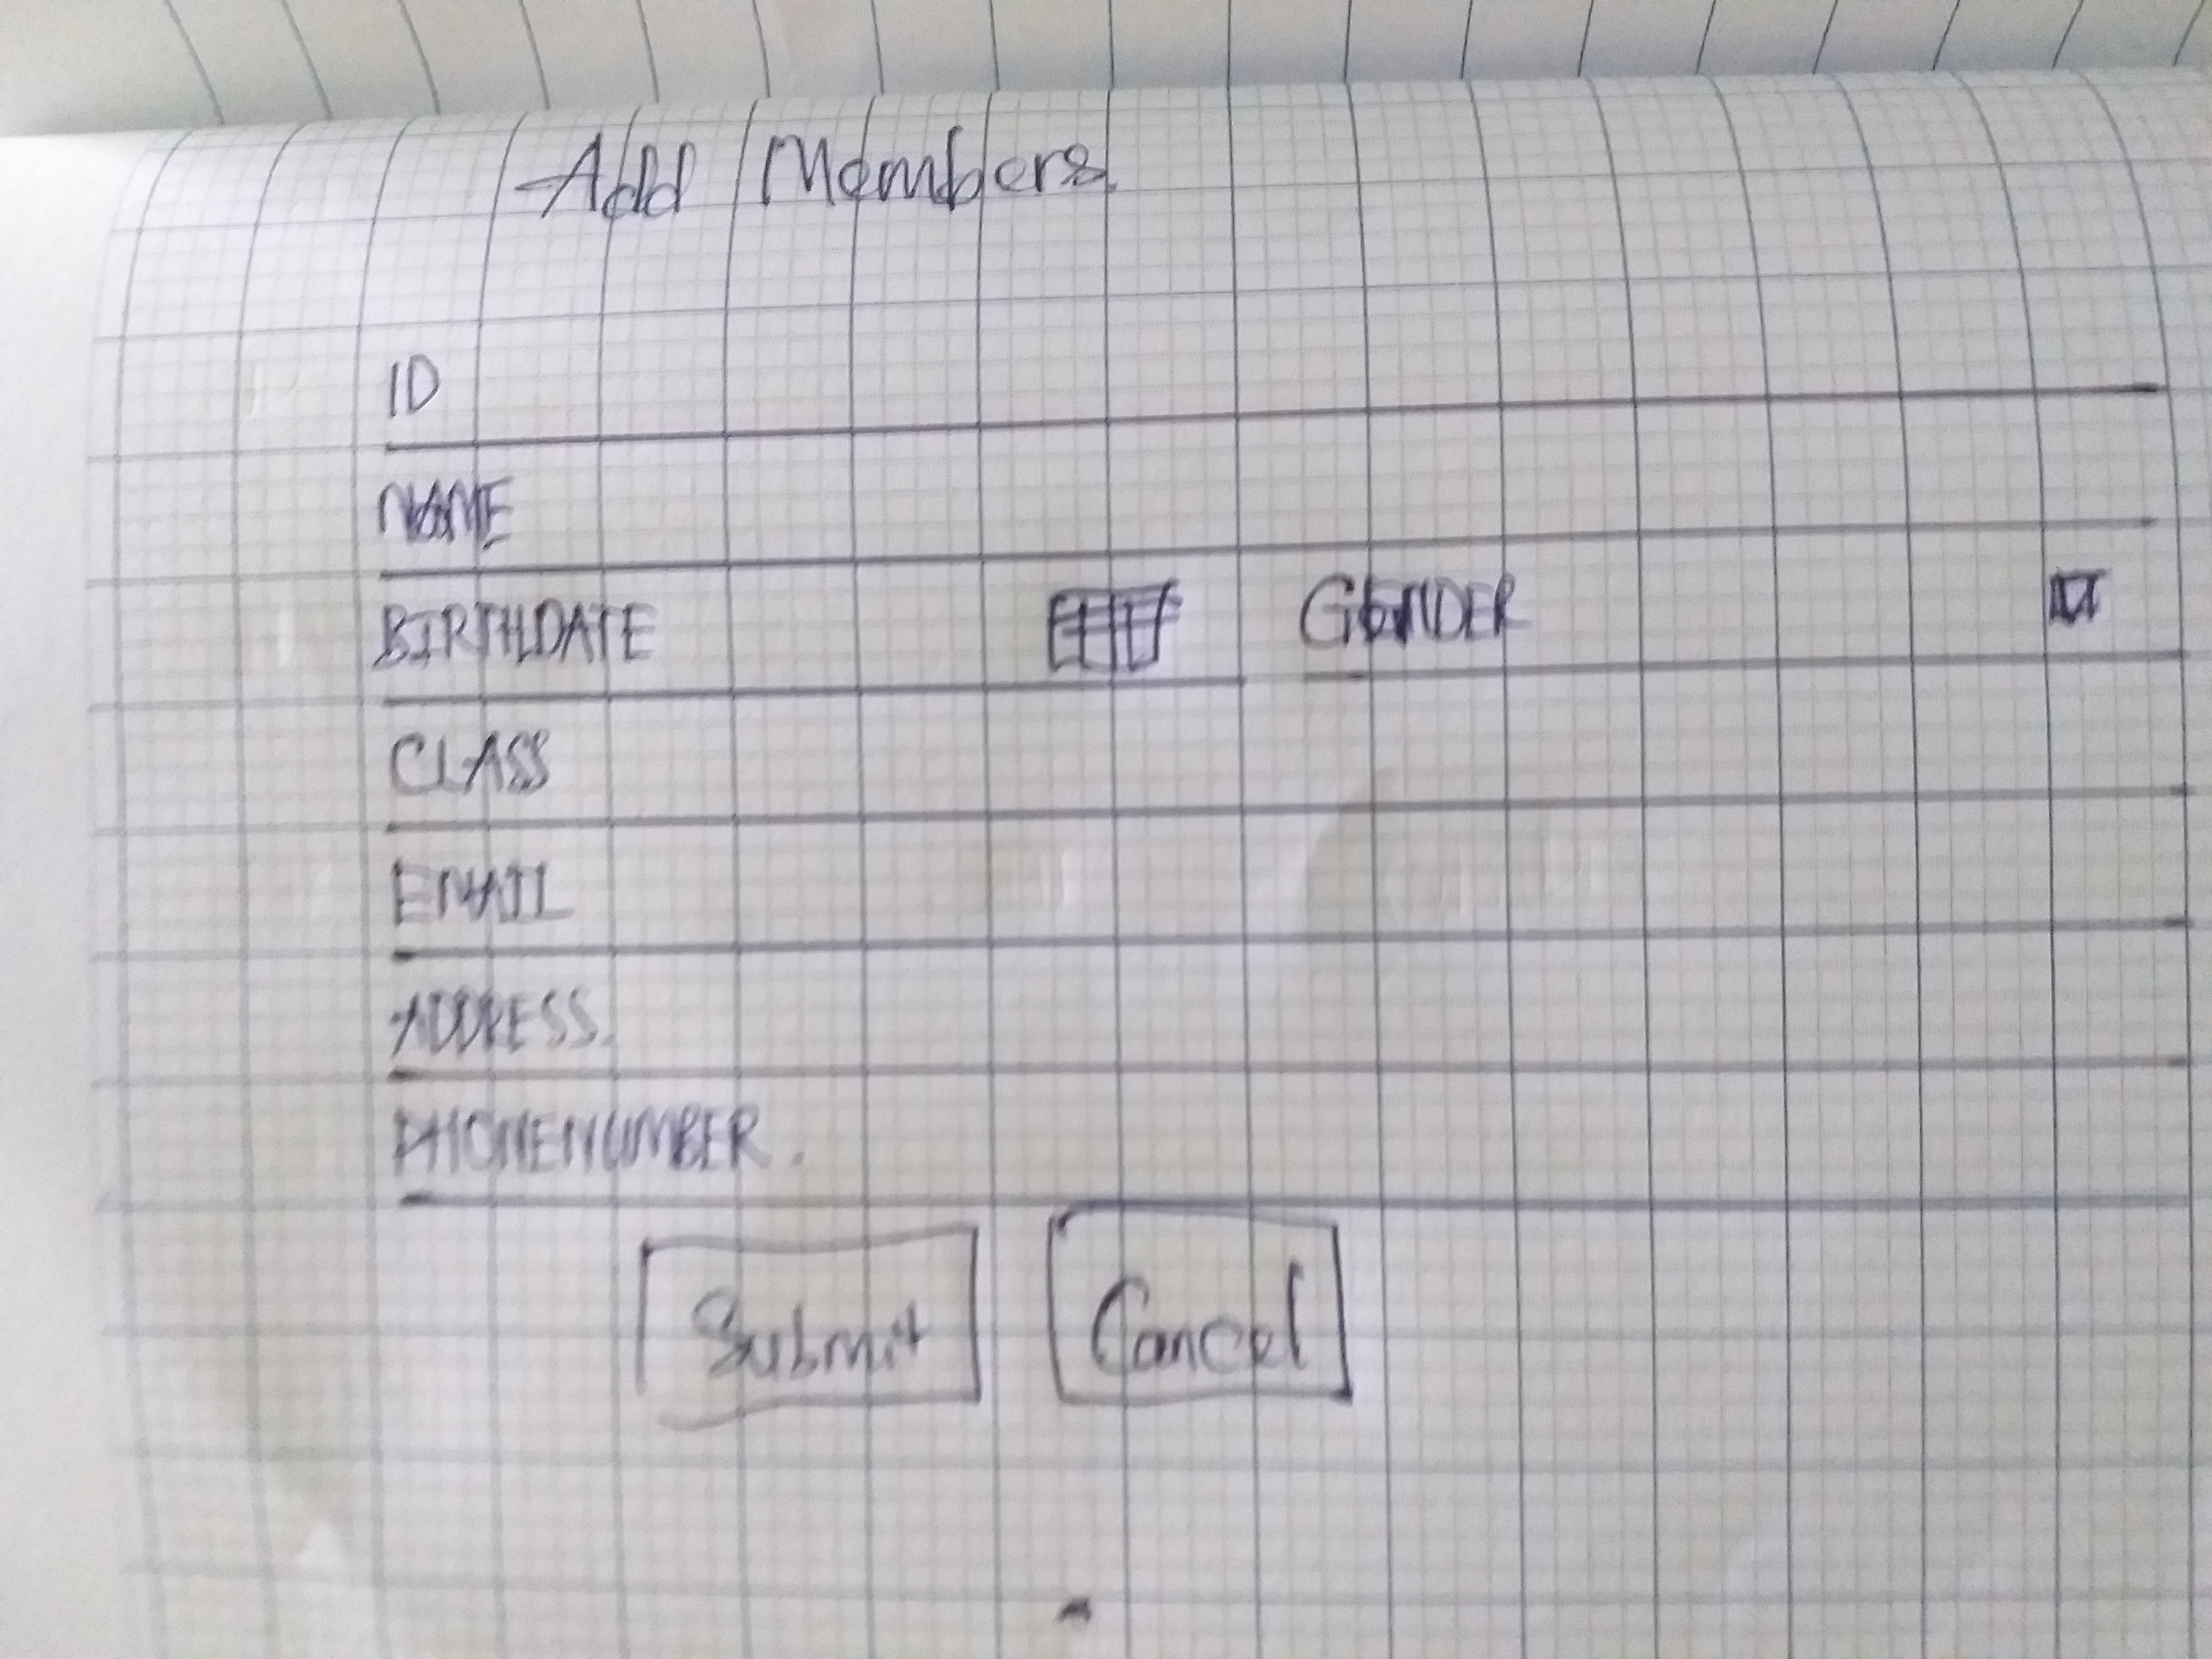 Add Members
ID
NAME
BIRTHDATE GENDER
CLASS
EMAIL
ADDRESS.
PHONENUMBER.
Submit Cancel